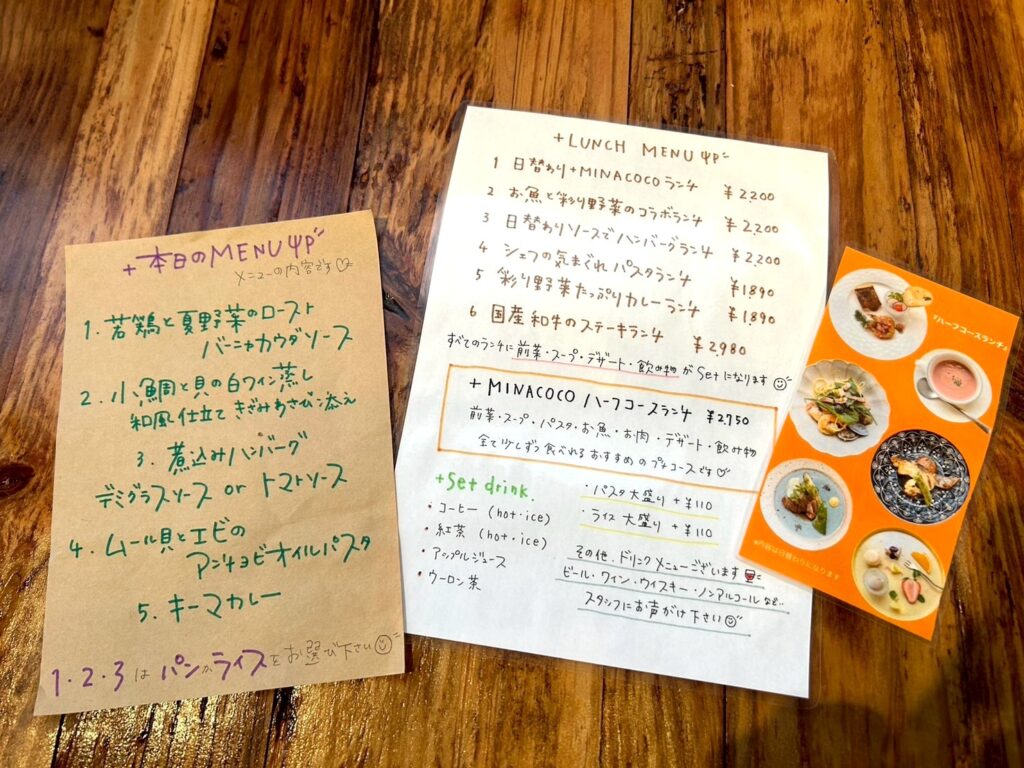 + 本日のMENU
メニューの内容です♡
1. 若鶏と夏野菜のロースト
バーニャカウダソース
2. 小鯛と貝の白ワイン蒸し
和風仕立て きざみわさび添え
3. 煮込みハンバーグ
デミグラスソース or トマトソース
4. ムール貝とエビの
アンチョビオイルパスタ
5. キーマカレー
1・2・3 は パンかライスをお選び下さい
+ LUNCH MENU
1 日替わり+MINACOCOランチ ¥2,200
2 お魚と彩り野菜のコラボランチ ¥2,200
3 日替わりソースでハンバーグランチ ¥2,200
4 シェフの気まぐれ パスタランチ ¥1,890
5 彩り野菜たっぷりカレーランチ ¥1,890
6 国産和牛のステーキランチ ¥2,980
すべてのランチに前菜・スープ・デザート・飲み物がSetになります
+ MINACOCO ハーフコースランチ ¥2,750
前菜・スープ・パスタ・お魚・お肉・デザート・飲み物
全て少しずつ食べれるおすすめのプチコースです♡
+Set drink.
・コーヒー (hot・ice)
・紅茶 (hot・ice)
・アップルジュース
・ウーロン茶
・パスタ大盛り +¥110
・ライス 大盛り +¥110
その他、ドリンクメニューございます
ビール・ワイン・ウイスキー・ノンアルコール など…
スタッフにお声がけ下さい
♪ハーフコースランチ♪
※内容は日替わりになります